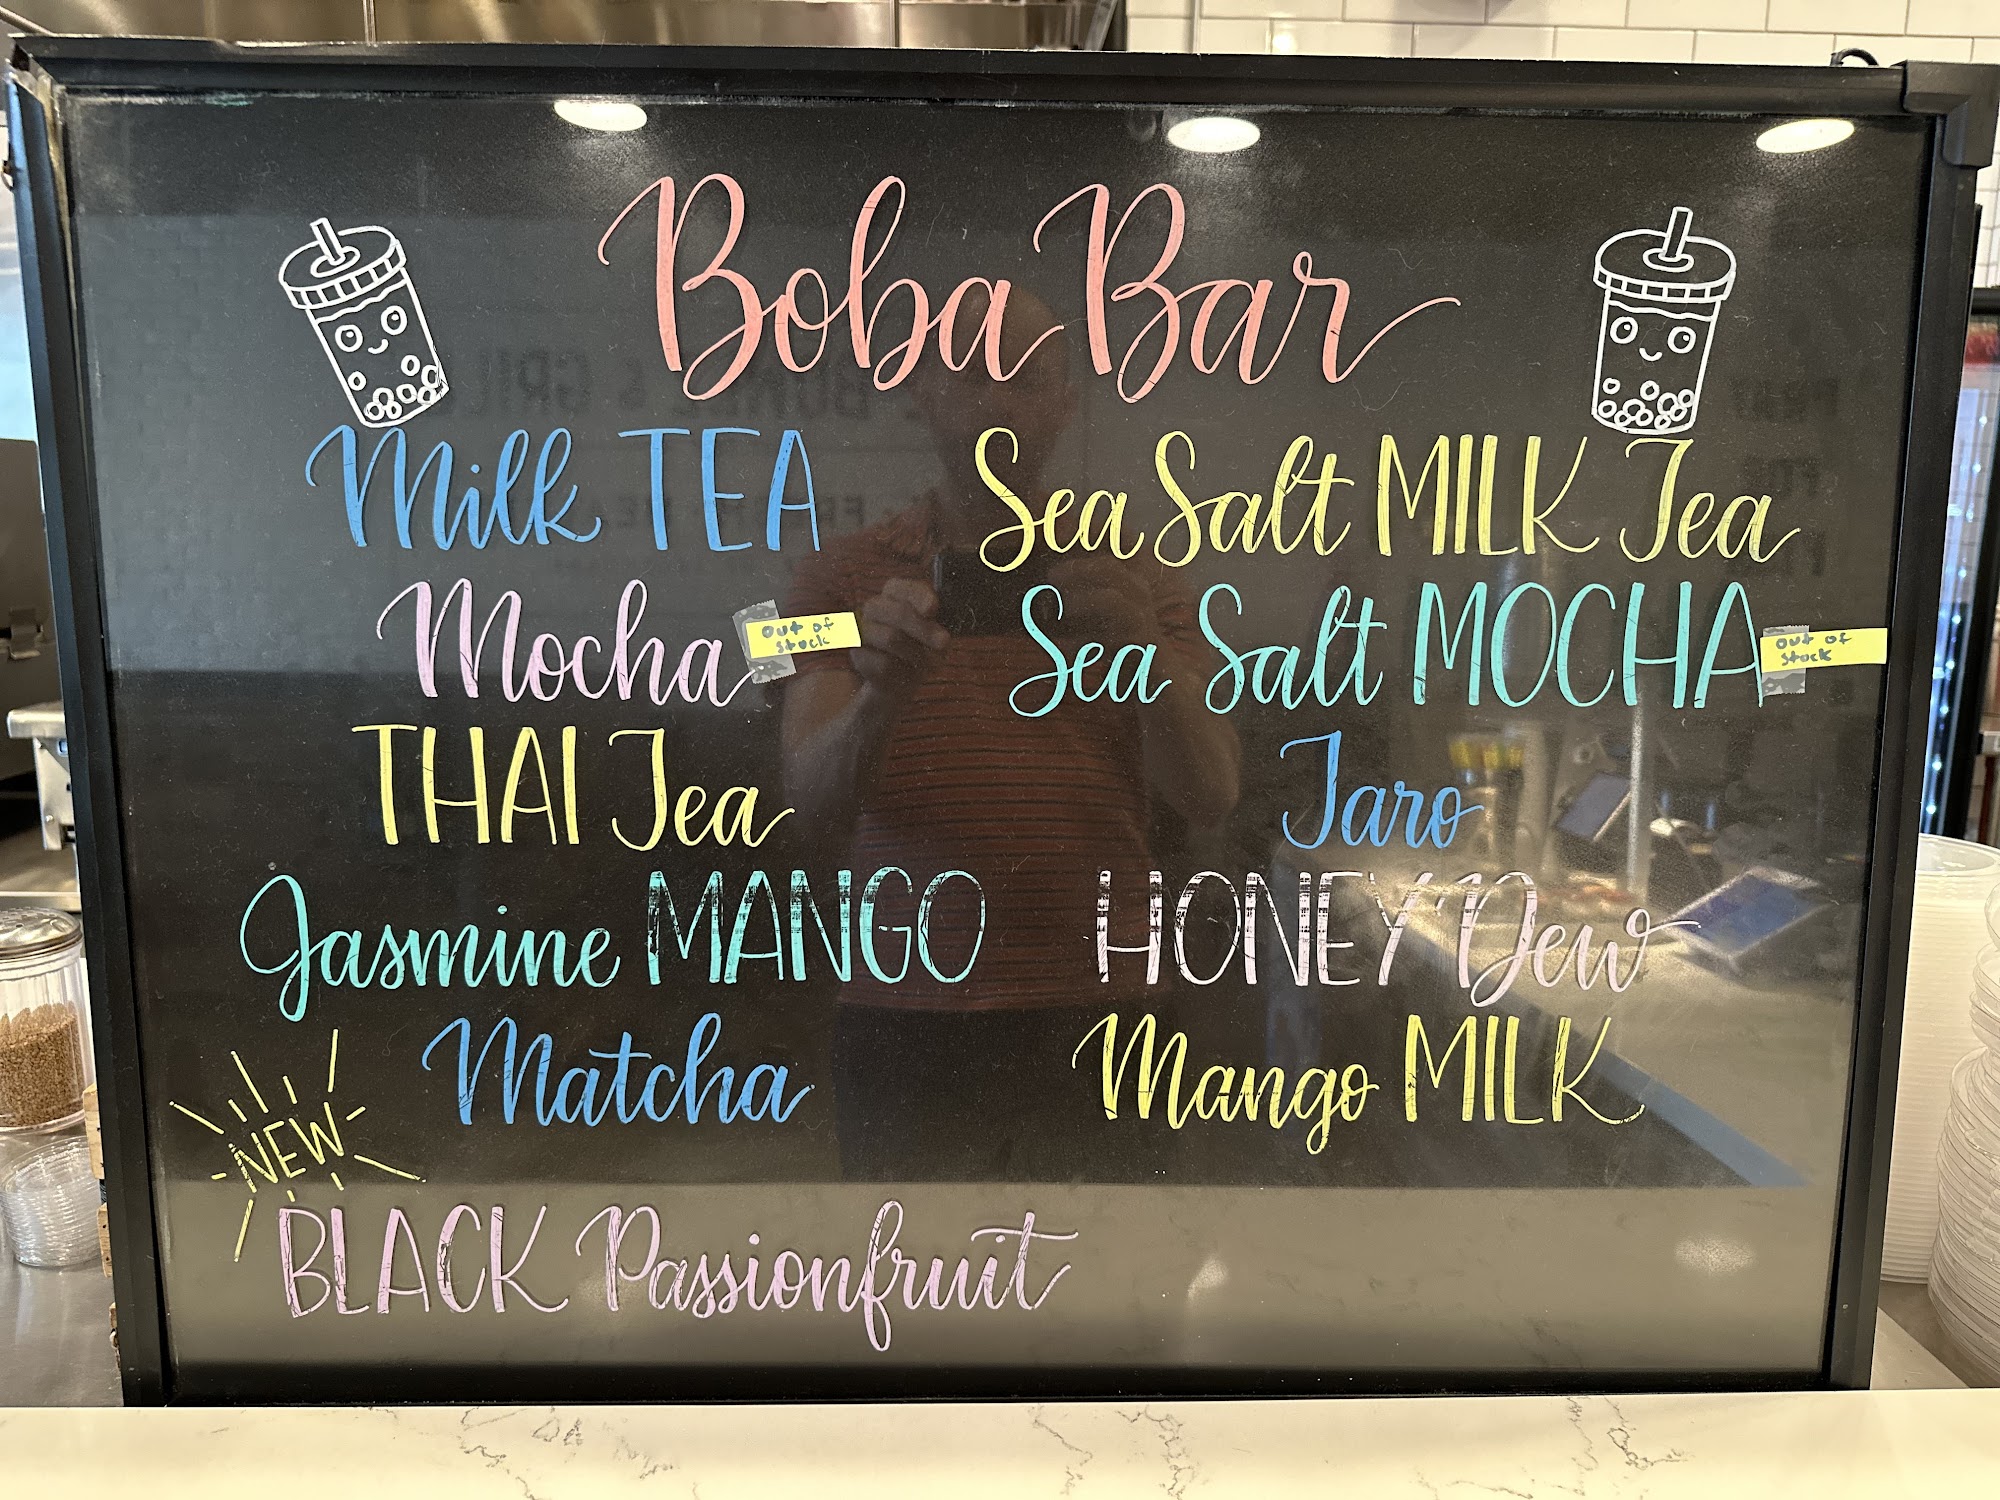 Boba Bar
Milk TEA
Mocha
out of
stock
THAI Tea
Jasmine MANGO
Matcha
NEW
BLACK Passionfruit
Sea Salt MILK Tea
Sea Salt MOCHA
out of
stock
Taro
HONEY Dew
Mango MILK